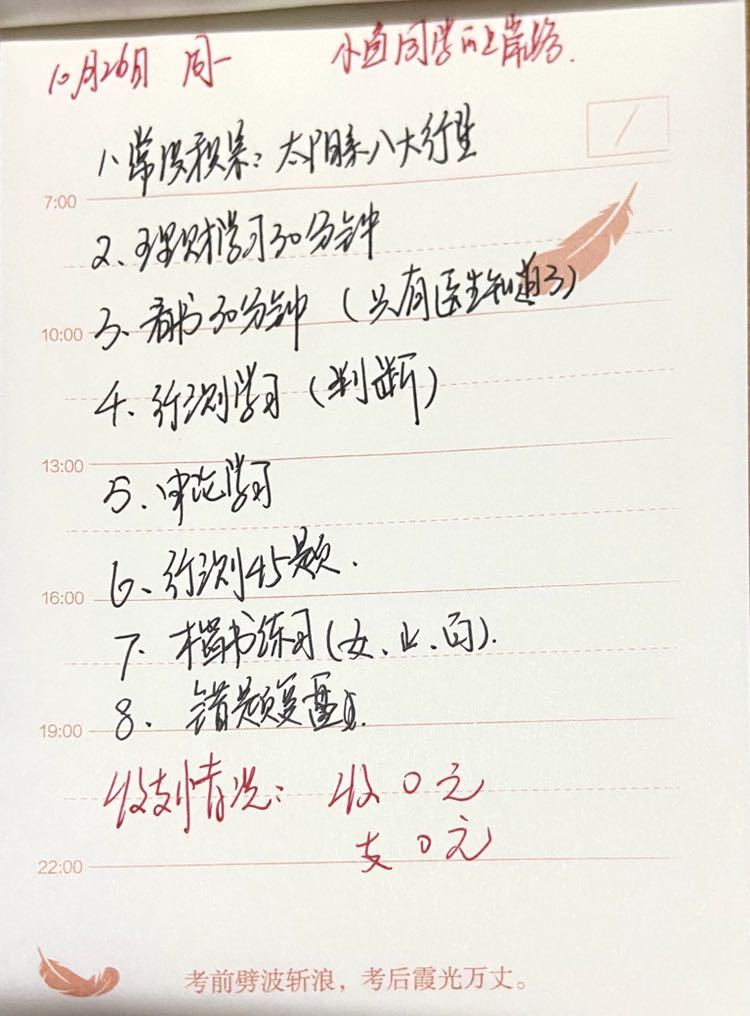 10月26日 周一 小鱼同学的上岸路.
1、常识积累:太阳系八大行星
7:00
2、理财学习30分钟
3、看书30分钟(只有医生知道3)
10:00
4、行测学习(判断)
13:00
5、申论学习
6、行测45题.
16:00
7、楷书练习(女、止、白).
8、错题复盘.
19:00
收支情况:收0元
支0元
22:00
考前劈波斩浪,考后霞光万丈。